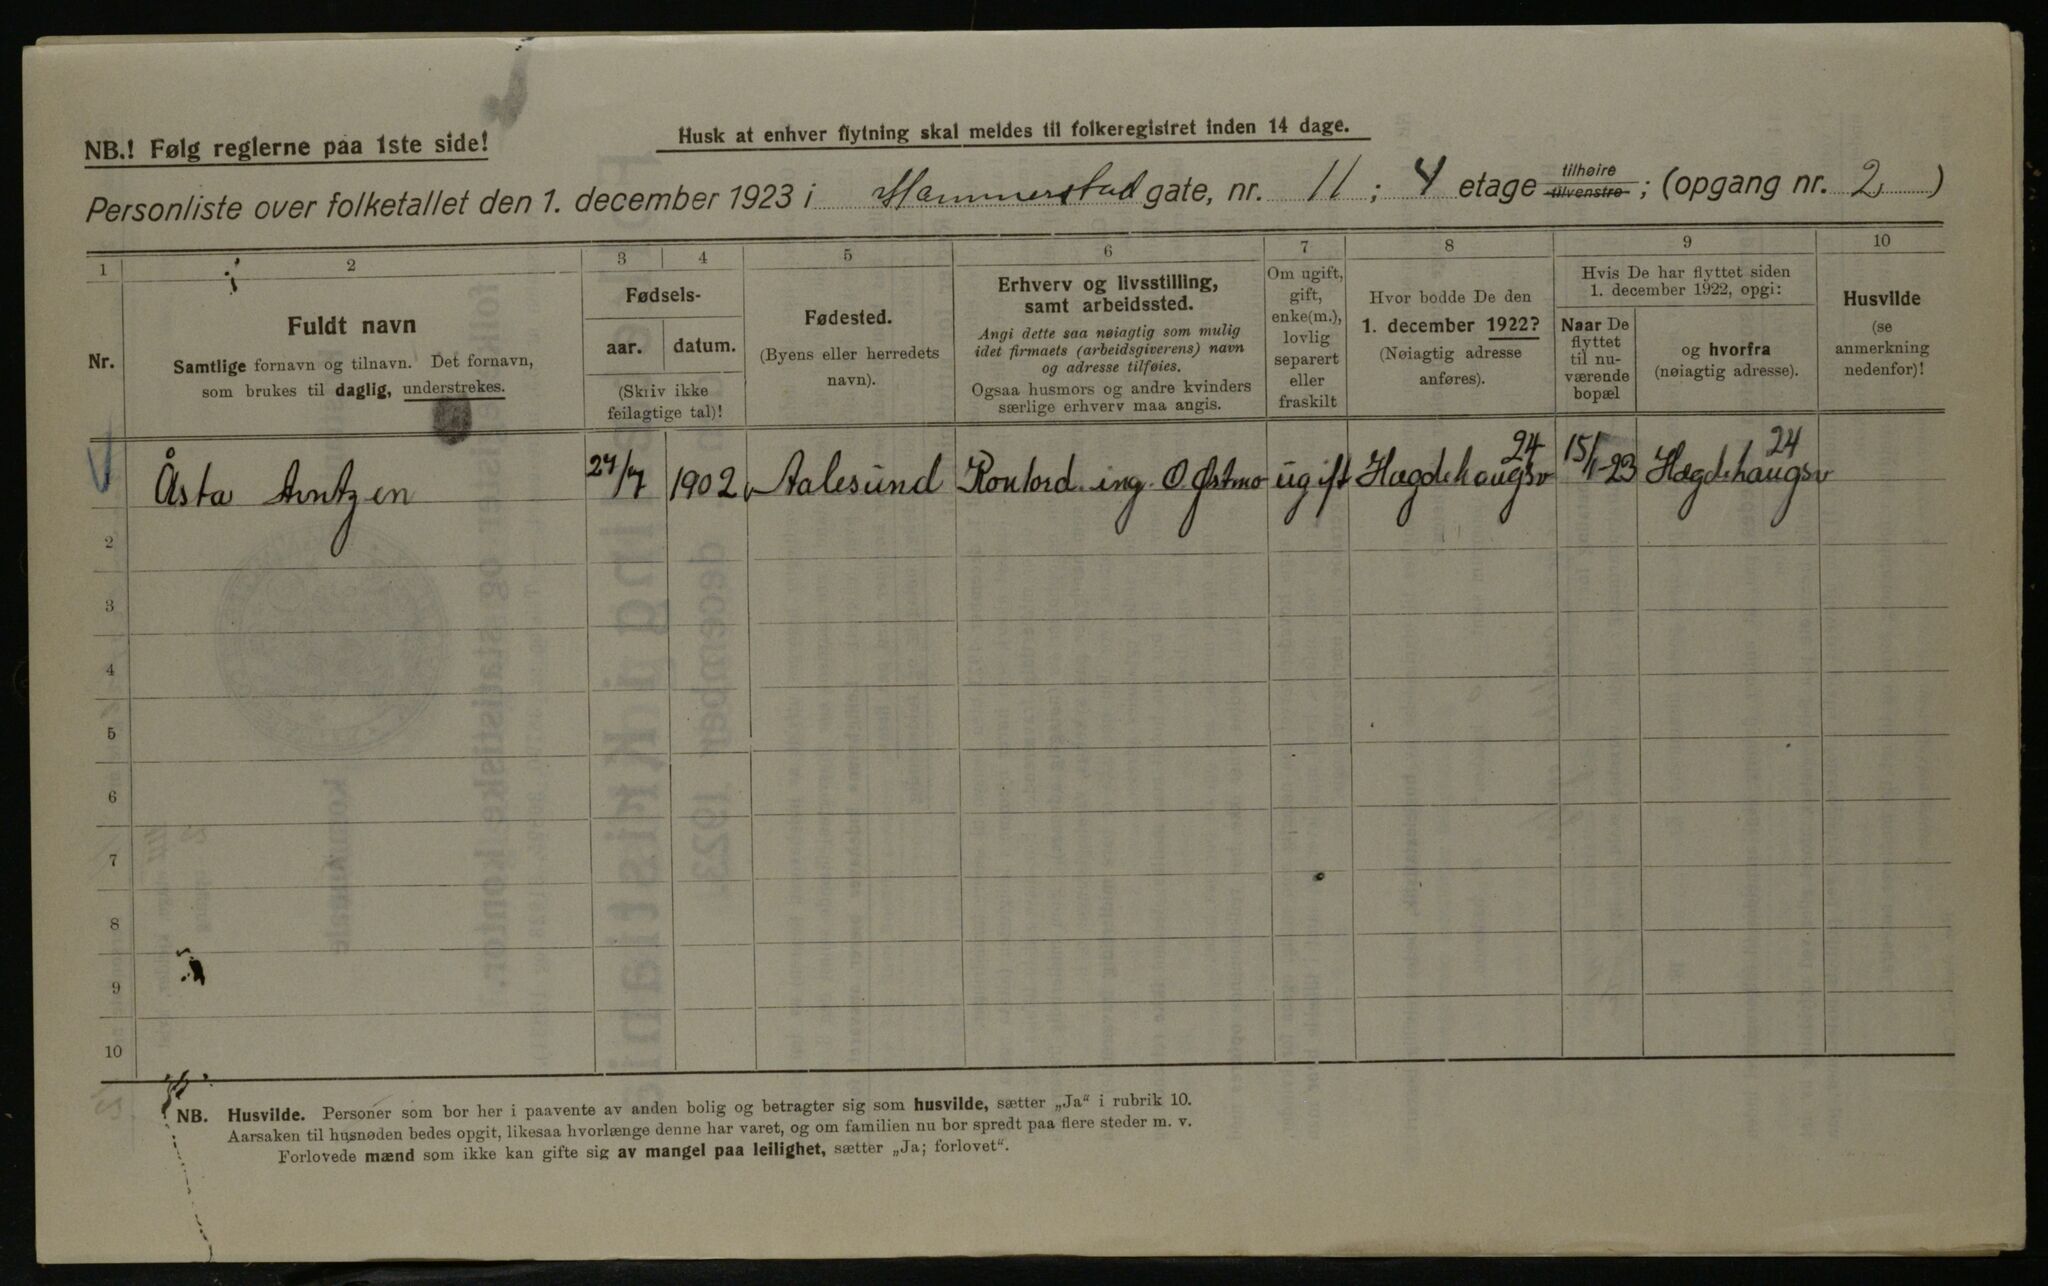 NB.! Følg reglerne paa 1ste side!
Husk at enhver flytning skal meldes til folkeregistret inden 14 dage.
Personliste over folketallet den 1. december 1923 i Hammerstad gate, nr. 11; 4 etage tilhøire tilvenstre; (opgang nr. 2)
1 2 3 4 5 6 7 8 9 10
Nr.
Fuldt navn
Samtlige fornavn og tilnavn. Det fornavn,
som brukes til daglig, understrekes.
Fødsels-
aar. datum.
(Skriv ikke
feilagtige tal)!
Fødested.
(Byens eller herredets
navn).
Erhverv og livsstilling,
samt arbeidssted.
Angi dette saa nøiagtig som mulig
idet firmaets (arbeidsgiverens) navn
og adresse tilføies.
Ogsaa husmors og andre kvinders
særlige erhverv maa angis.
Om ugift,
gift,
enke(m.),
lovlig
separert
eller
fraskilt
Hvor bodde De den
1. december 1922?
(Nøiagtig adresse
anføres).
Hvis De har flyttet siden
1. december 1922, opgi:
Naar De
flyttet
til nu-
værende
bopæl
og hvorfra
(nøiagtig adresse).
Husvilde
(se
anmerkning
nedenfor)!
1 Åsta Arntzen 27/7 1902 Aalesund Kontord. ing. O. Østmo ugift Hægdehaugsv 24 15/1-23 Hægdehaugsv 24
2
3
4
5
6
7
8
9
10
NB. Husvilde. Personer som bor her i paavente av anden bolig og betragter sig som husvilde, sætter „Ja“ i rubrik 10.
Aarsaken til husnøden bedes opgit, likesaa hvorlænge denne har varet, og om familien nu bor spredt paa flere steder m. v.
Forlovede mænd som ikke kan gifte sig av mangel paa leilighet, sætter „Ja; forlovet“.